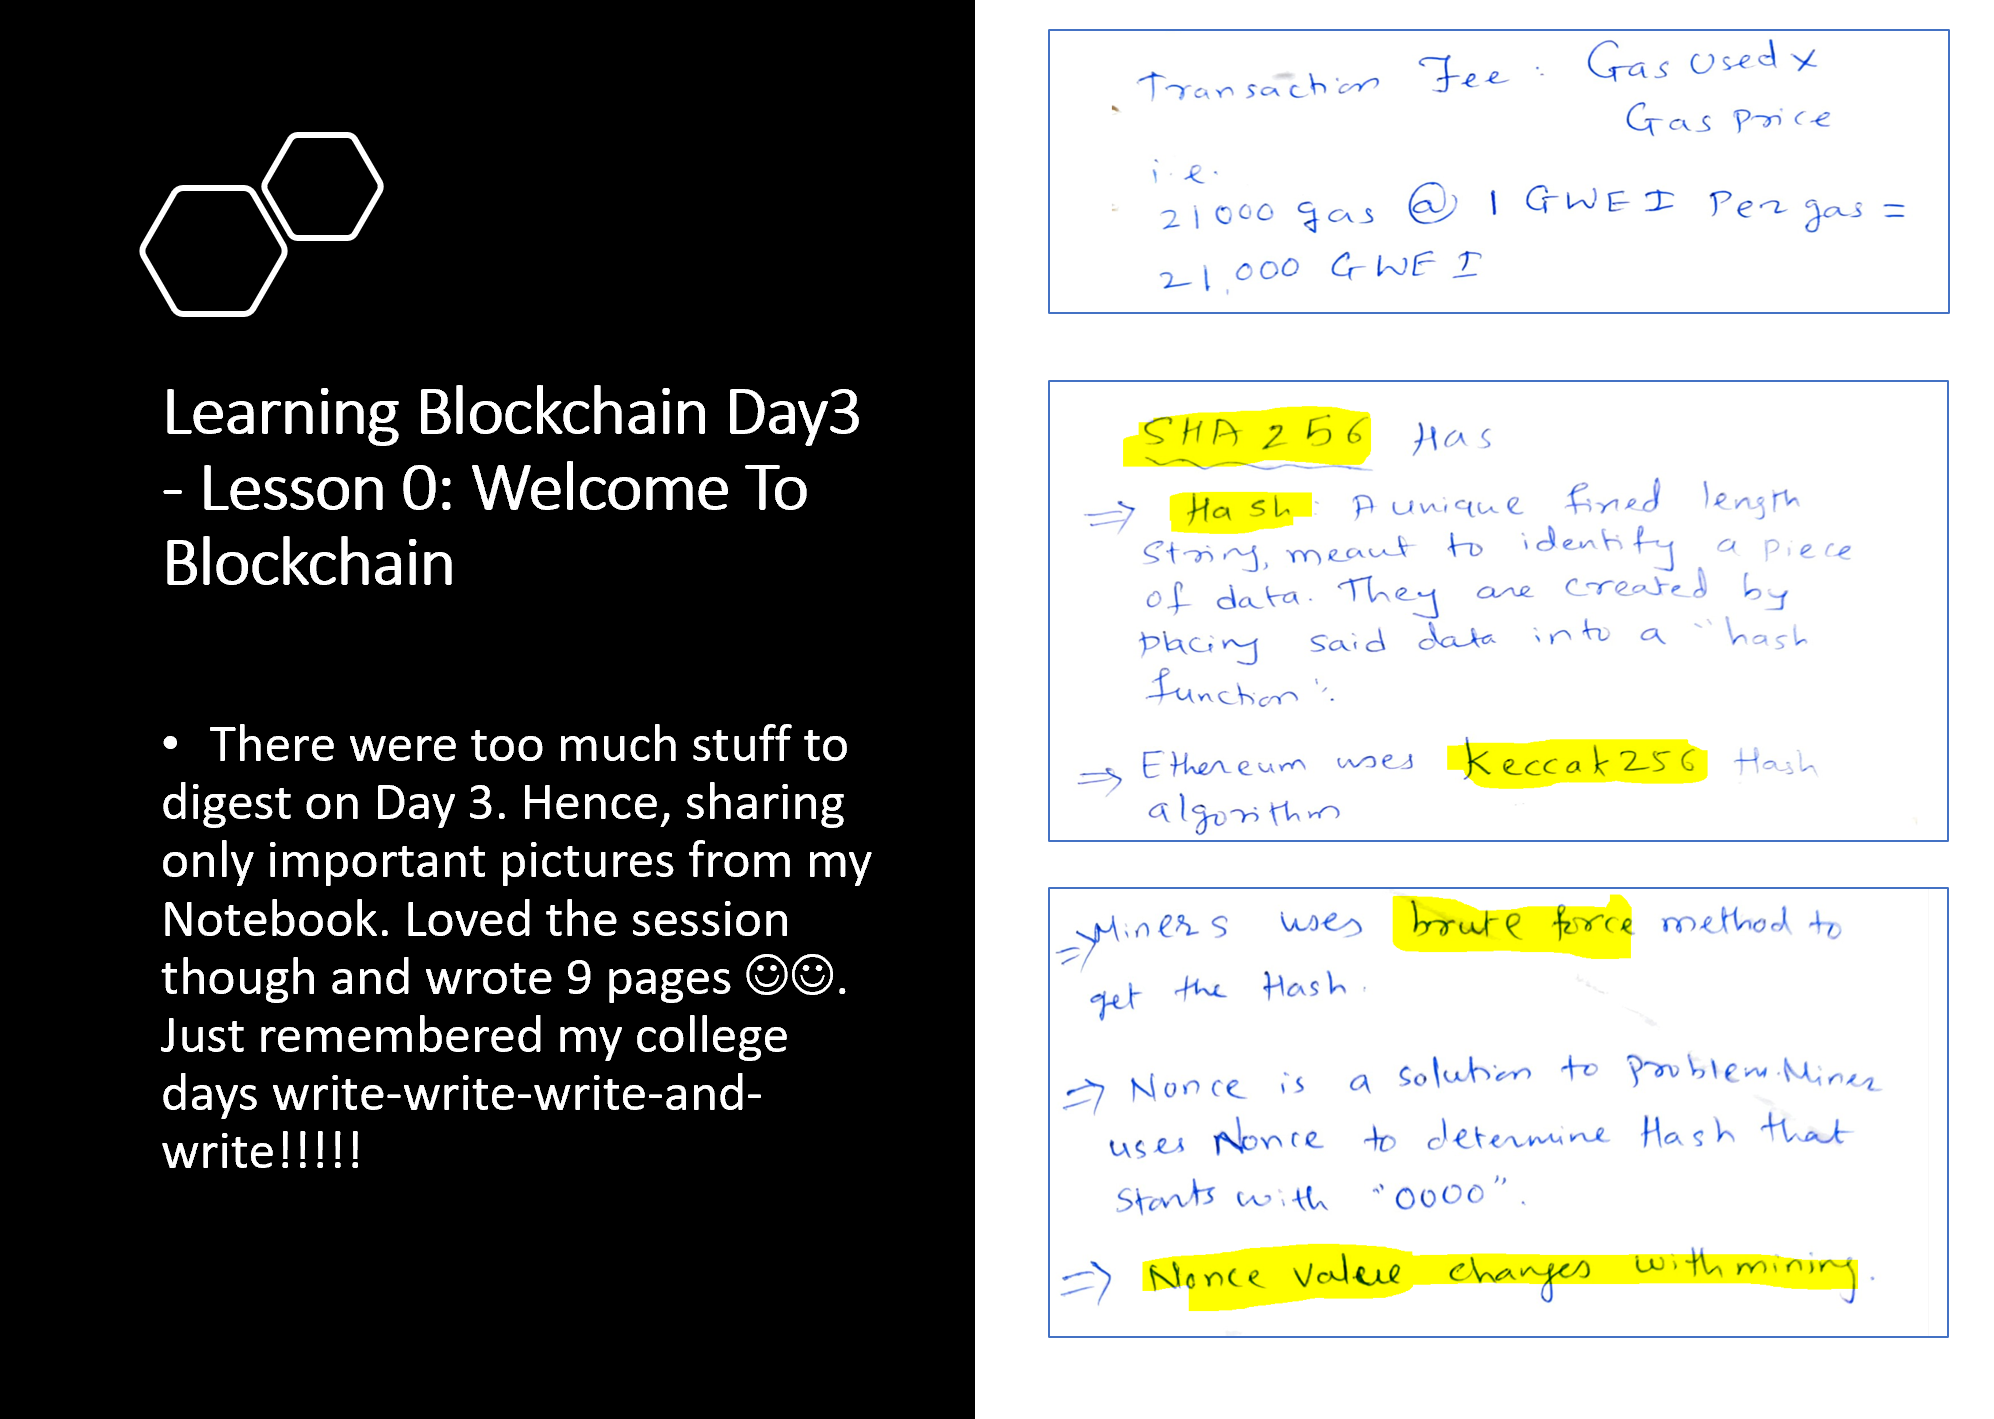 Learning Blockchain Day3
- Lesson 0: Welcome To
Blockchain
• There were too much stuff to
digest on Day 3. Hence, sharing
only important pictures from my
Notebook. Loved the session
though and wrote 9 pages ☺☺.
Just remembered my college
days write-write-write-and-
write!!!!!
Transaction Fee : Gas Used x
Gas Price
i.e.
21000 gas @ 1 GWEI Per gas =
21,000 GWEI
SHA 256 Has
⇒ Hash : A unique fixed length
String, meant to identify a piece
of data. They are created by
placing said data into a "hash
function".
⇒ Ethereum uses Keccak256 Hash
algorithm
⇒ Miners uses brute force method to
get the Hash.
⇒ Nonce is a solution to problem. Miner
uses Nonce to determine Hash that
starts with "0000".
⇒ Nonce value changes with mining.